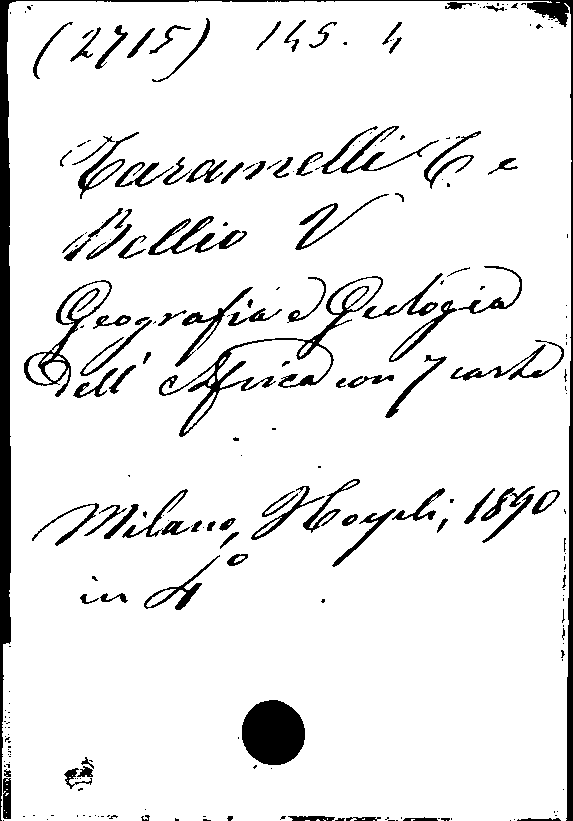 (2715) 145. 4
Taramelli T. e
Bellio V
Geografia e Geologia
dell' Africa con 7 carte
Milano, Hoepli, 1890
in 4°